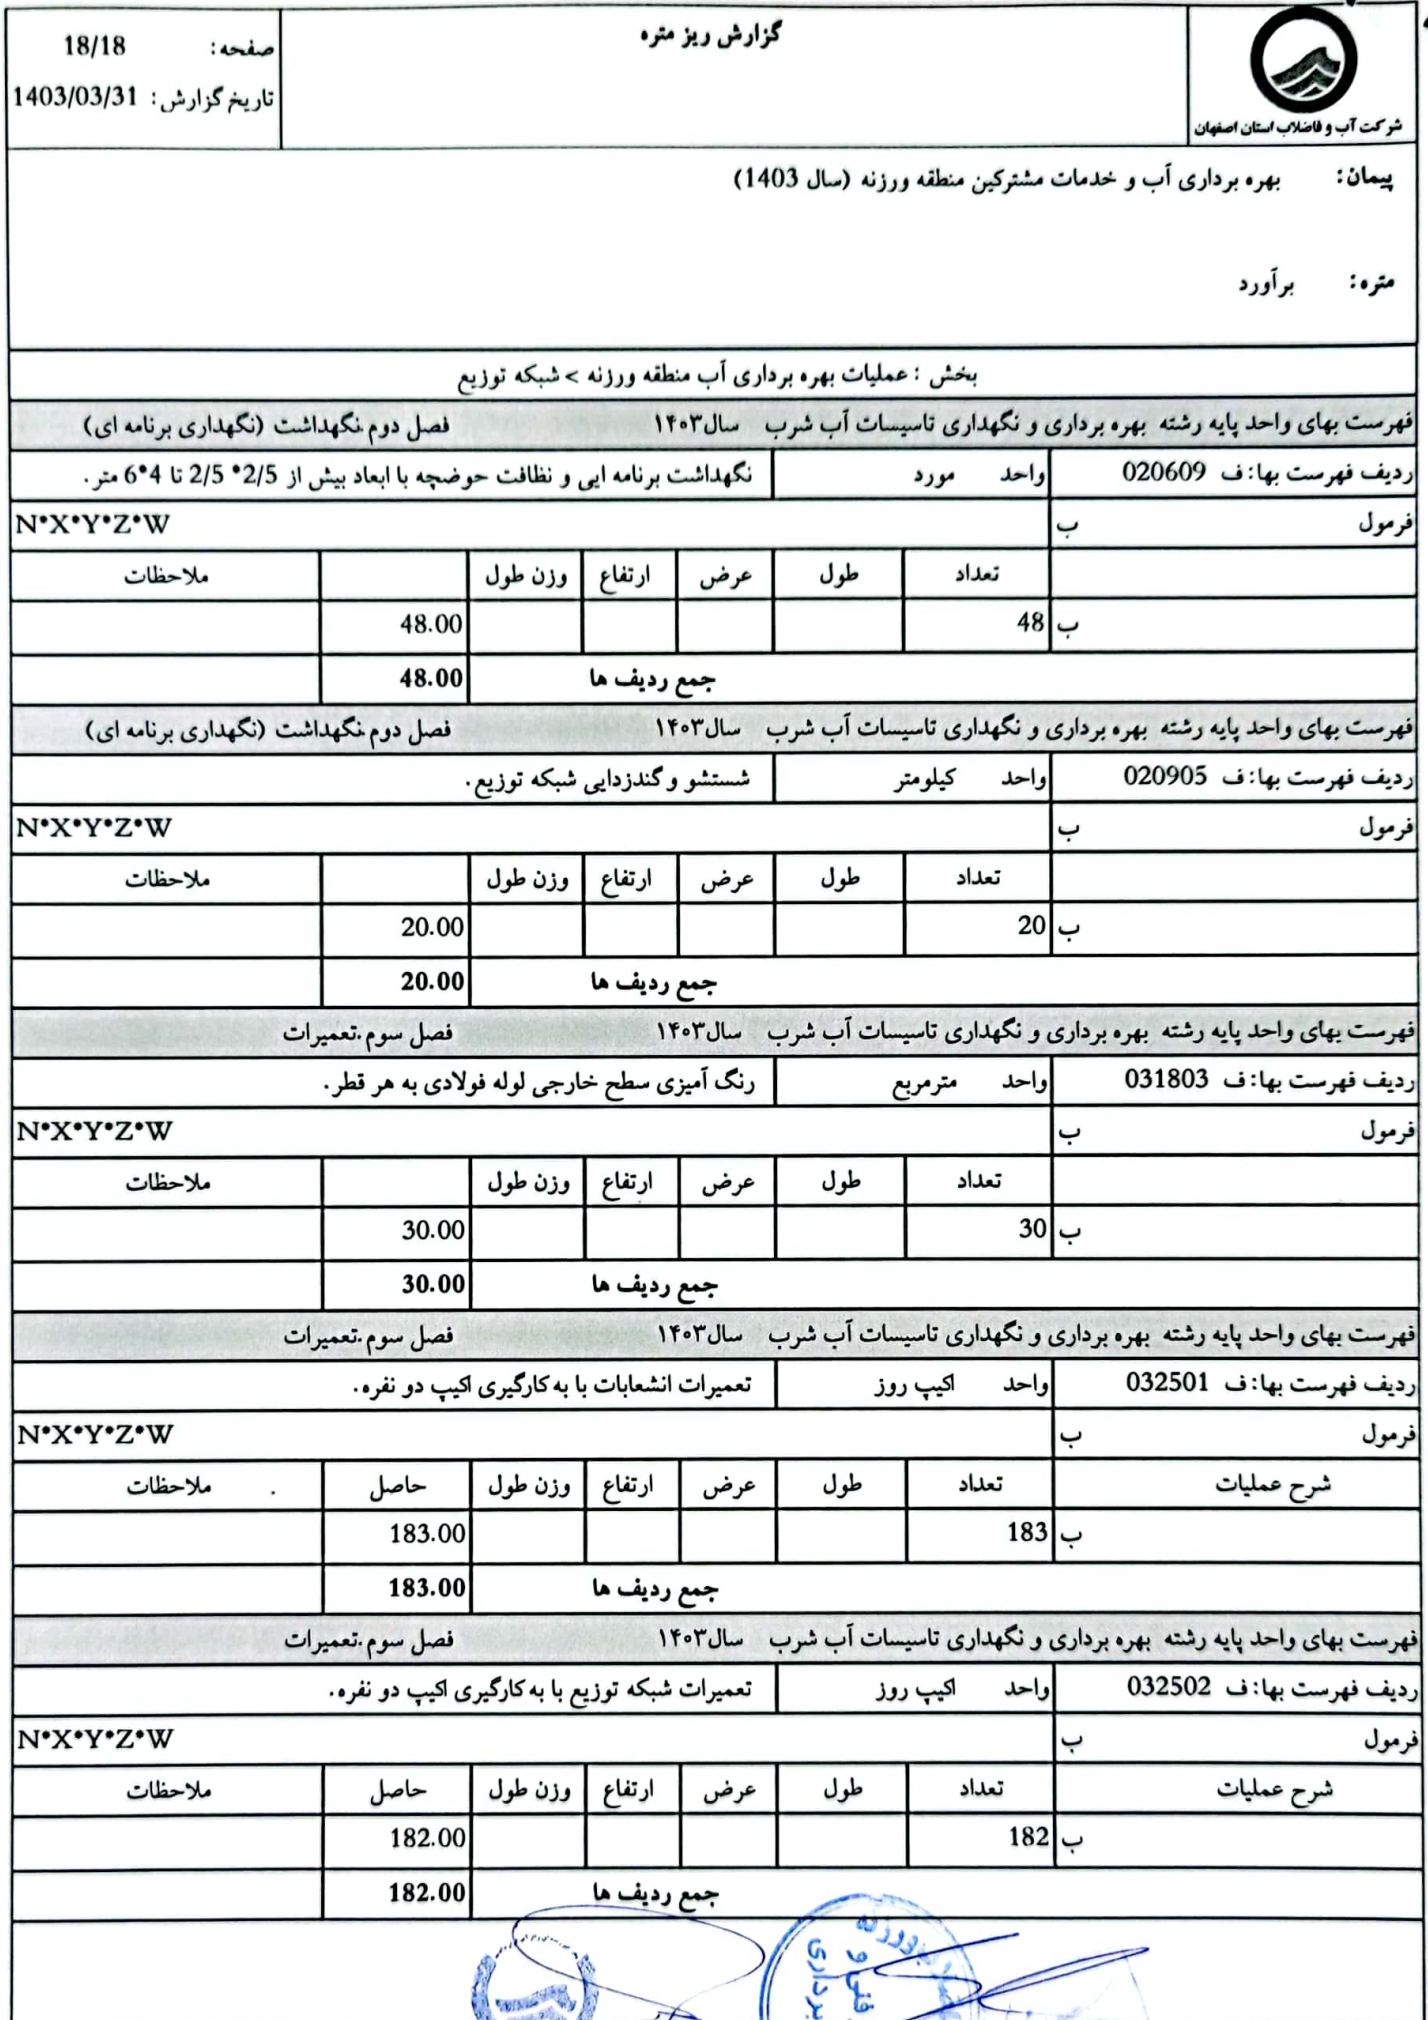 گزارش ریز متره
شرکت آب و فاضلاب استان اصفهان
صفحه: 18/18
تاریخ گزارش: 1403/03/31
پیمان: بهره برداری آب و خدمات مشترکین منطقه ورزنه (سال 1403)
متره: برآورد
بخش : عملیات بهره برداری آب منطقه ورزنه > شبکه توزیع
فهرست بهای واحد پایه رشته بهره برداری و نگهداری تاسیسات آب شرب سال۱۴۰۳ فصل دوم.نگهداشت (نگهداری برنامه ای)
ردیف فهرست بها: ف 020609 واحد مورد نگهداشت برنامه ایی و نظافت حوضچه با ابعاد بیش از 2/5* 2/5 تا 4*6 متر.
فرمول ب N*X*Y*Z*W
تعداد طول عرض ارتفاع وزن طول ملاحظات
ب 48 48.00
جمع ردیف ها 48.00
فهرست بهای واحد پایه رشته بهره برداری و نگهداری تاسیسات آب شرب سال۱۴۰۳ فصل دوم.نگهداشت (نگهداری برنامه ای)
ردیف فهرست بها: ف 020905 واحد کیلومتر شستشو و گندزدایی شبکه توزیع.
فرمول ب N*X*Y*Z*W
تعداد طول عرض ارتفاع وزن طول ملاحظات
ب 20 20.00
جمع ردیف ها 20.00
فهرست بهای واحد پایه رشته بهره برداری و نگهداری تاسیسات آب شرب سال۱۴۰۳ فصل سوم.تعمیرات
ردیف فهرست بها: ف 031803 واحد مترمربع رنگ آمیزی سطح خارجی لوله فولادی به هر قطر.
فرمول ب N*X*Y*Z*W
تعداد طول عرض ارتفاع وزن طول ملاحظات
ب 30 30.00
جمع ردیف ها 30.00
فهرست بهای واحد پایه رشته بهره برداری و نگهداری تاسیسات آب شرب سال۱۴۰۳ فصل سوم.تعمیرات
ردیف فهرست بها: ف 032501 واحد اکیپ روز تعمیرات انشعابات با به کارگیری اکیپ دو نفره.
فرمول ب N*X*Y*Z*W
شرح عملیات تعداد طول عرض ارتفاع وزن طول حاصل ملاحظات
ب 183 183.00
جمع ردیف ها 183.00
فهرست بهای واحد پایه رشته بهره برداری و نگهداری تاسیسات آب شرب سال۱۴۰۳ فصل سوم.تعمیرات
ردیف فهرست بها: ف 032502 واحد اکیپ روز تعمیرات شبکه توزیع با به کارگیری اکیپ دو نفره.
فرمول ب N*X*Y*Z*W
شرح عملیات تعداد طول عرض ارتفاع وزن طول حاصل ملاحظات
ب 182 182.00
جمع ردیف ها 182.00